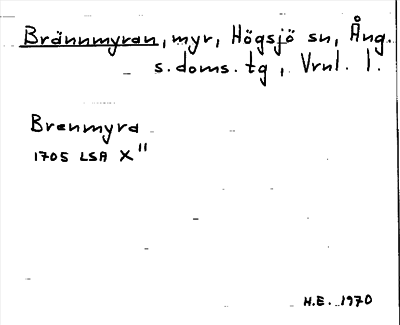 Brännmyran, myr, Högsjö sn, Ång.
s. doms. tg, Vrnl. l.
Brenmyra
1705 LSA X"
H.E. 1970